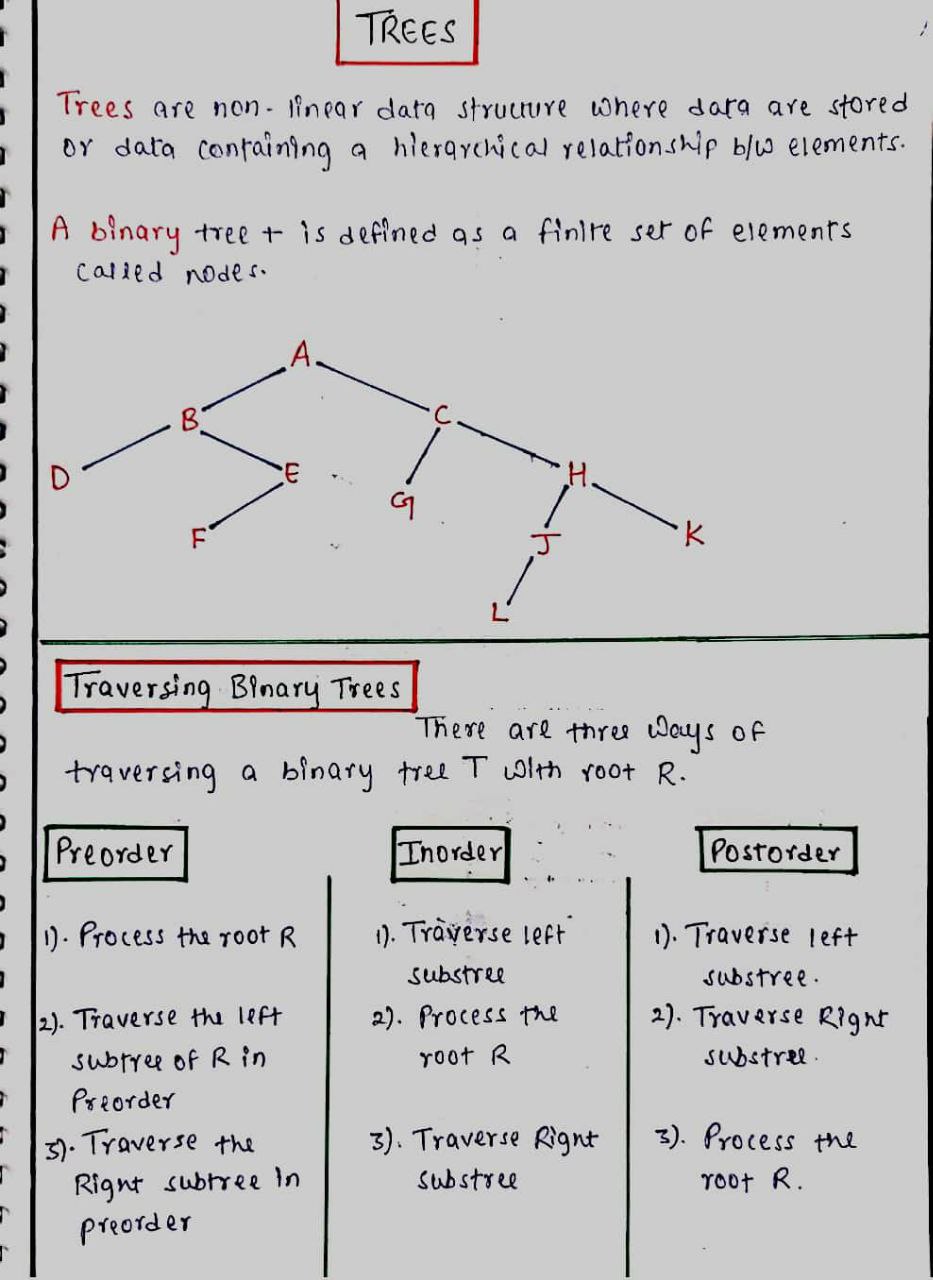 TREES
Trees are non-linear data structure where data are stored
or data containing a hierarchical relationship b/w elements.
A binary tree t is defined as a finite set of elements
called nodes.
A
B
C
D
E
H
G
F
J
K
L
Traversing Binary Trees
There are three ways of
traversing a binary tree T with root R.
Preorder
1). Process the root R
2). Traverse the left
subtree of R in
Preorder
3). Traverse the
Right subtree in
preorder
Inorder
1). Traverse left
substree
2). Process the
root R
3). Traverse Right
substree
Postorder
1). Traverse left
substree.
2). Traverse Right
substree.
3). Process the
root R.